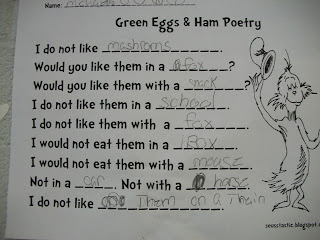 Name:
Green Eggs & Ham Poetry
I do not like mashroms.
Would you like them in a fox?
Would you like them with a snack?
I do not like them in a school.
I do not like them with a fox.
I would not eat them in a Box.
I would not eat them with a mouse.
Not in a car. Not with a horse.
I do not like Them on a Thain
seusstastic.blogspot.c